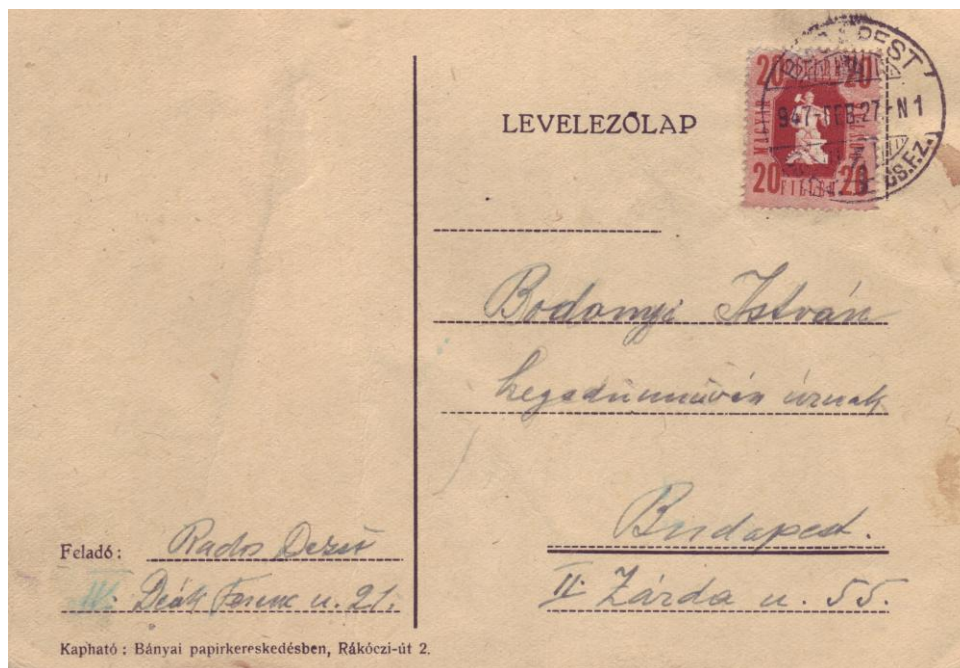 LEVELEZŐLAP
20 20
MAGYAR
20 FILLÉR 20
BUDAPEST
947 FEB. 27 - N 1
Bodonyi István
hegedűművész úrnak
Budapest.
II. Zárda u. 55.
Feladó: Rados Dezső
IV. Deák Ferenc u. 21.
Kapható: Bányai papirkereskedésben, Rákóczi-út 2.